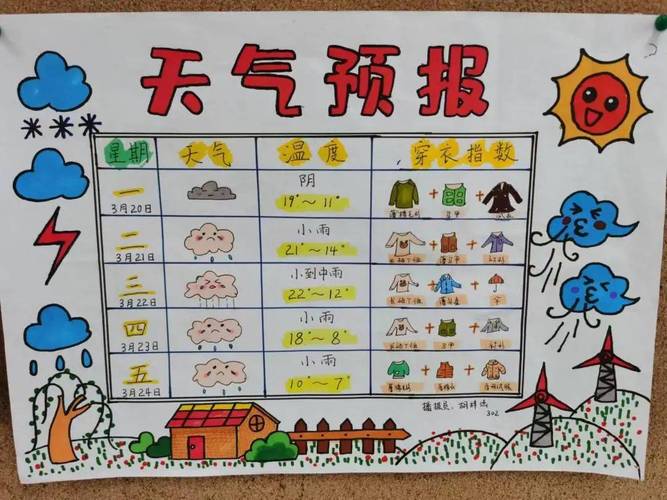 天气预报
星期 天气 温度 穿衣指数
一 3月20日 阴 19°~11°
马甲
二 3月21日 小雨 21°~14°
长袖T恤
三 3月22日 小到中雨 22°~12°
长袖T恤 伞
四 3月23日 小雨 18°~8°
长袖T恤 马甲
五 3月24日 小雨 10°~7°
播报员:
302